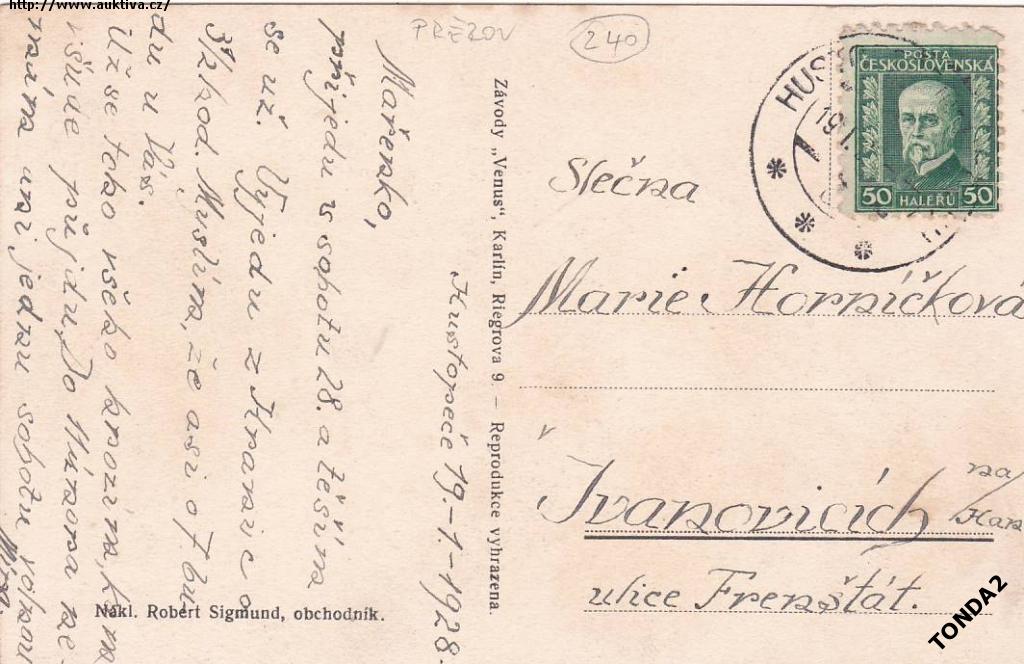 http://www.auktiva.cz/
PŘEROV
240
POŠTA
ČESKOSLOVENSKÁ
50 HALÉŘŮ 50
HUST
19.I.
Slečna
Marie Horníčková
v
Ivanovicích na/Han
ulice Frenštát.
Závody „Venus“, Karlín, Riegrova 9 – Reprodukce vyhrazena.
Hustopeče 19.-1.-1928.
Mařenko,
přijedu v sobotu 28. a těším
se už. Vyjedu z Hranic o
hod. Myslím, že asi o 7. bu
du u Vás.
Už se toho všeho hrozím, kam
všude přijdu. Do února ne
mám ani jednu sobotu volnou
Nákl. Robert Sigmund, obchodník.
TONDA2